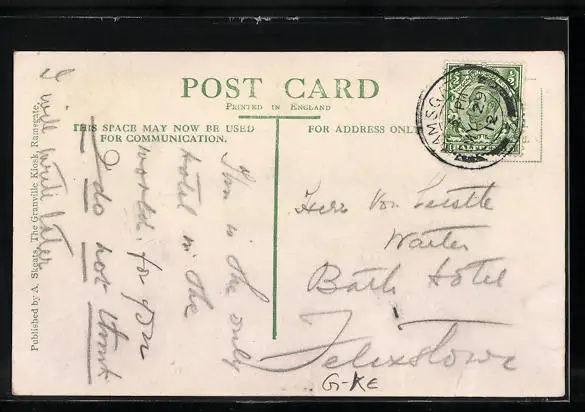 POST CARD
PRINTED IN ENGLAND
THIS SPACE MAY NOW BE USED
FOR COMMUNICATION.
FOR ADDRESS ONLY
Published by A. Skeats, The Granville Kiosk, Ramsgate.
I will write later
This is the only
hotel in the
world. for you
I do not think
Herr Von
Waiter
Bath Hotel
Felixstowe
G-KE